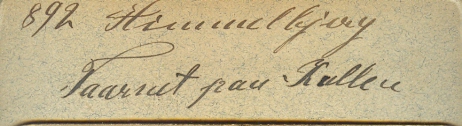 892 Himmelbjerg
Taarnet paa Kollen